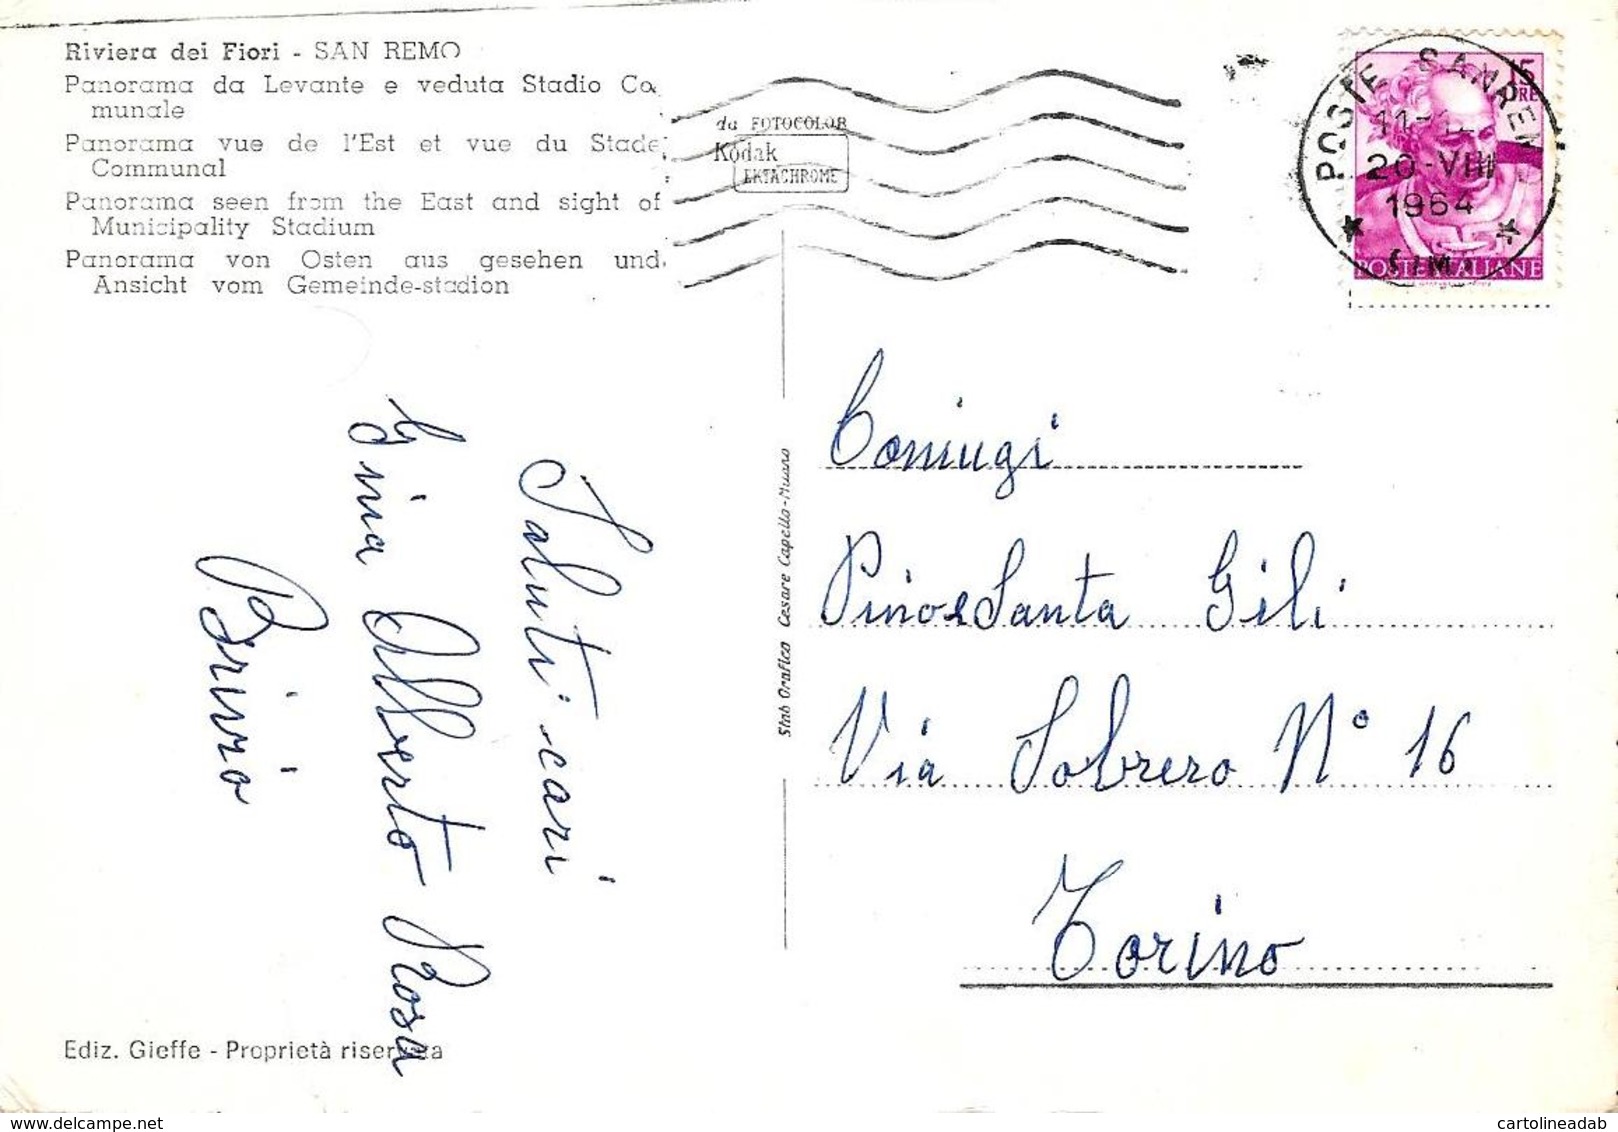 Riviera dei Fiori - SAN REMO
Panorama da Levante e veduta Stadio Co
munale
Panorama vue de l'Est et vue du Stade
Communal
Panorama seen from the East and sight of
Municipality Stadium
Panorama von Osten aus gesehen und
Ansicht vom Gemeinde-stadion
da FOTOCOLOR
Kodak
EKTACHROME
POSTE SANREM
20-VIII
1964
15
POSTE ITALIANE
Coniugi
Pino e Santa Gili
Via Sobrero N° 16
Torino
Saluti cari
Gina Alberto Rosa
Brivio
Stab Grafico Cesare Capello-Milano
Ediz. Gieffe - Proprietà riservata
cartolineadab